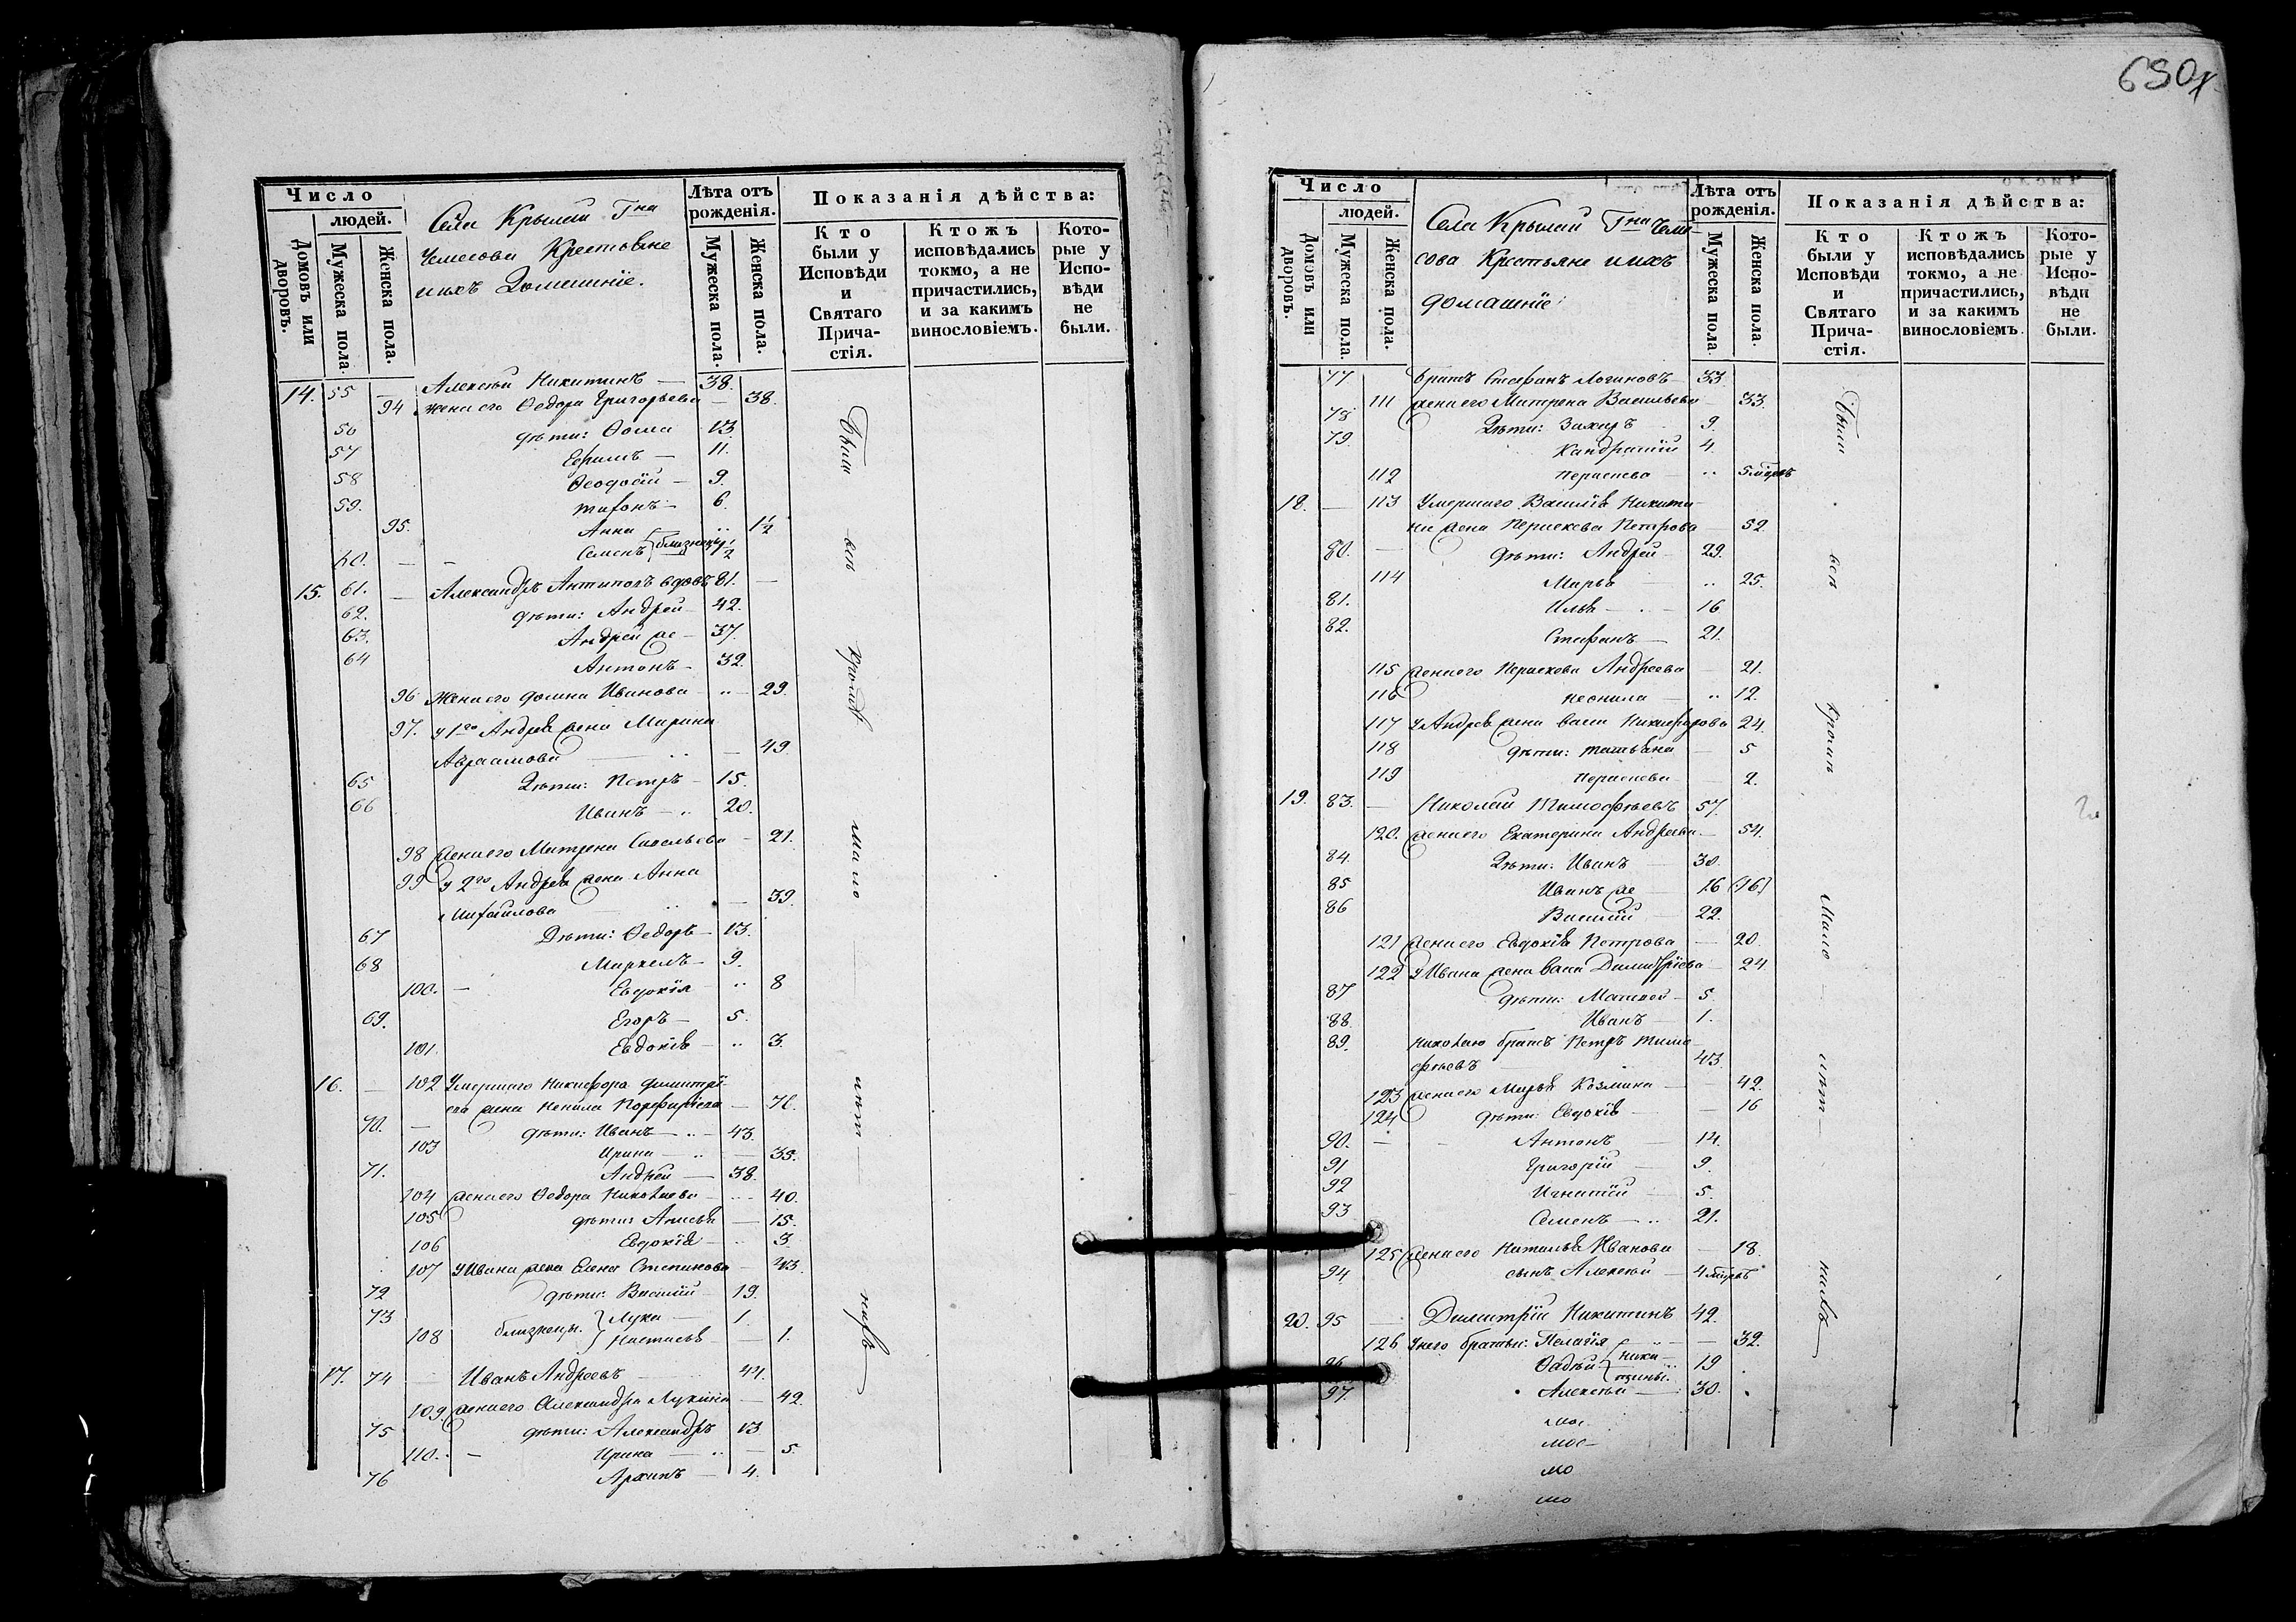 690
Число
людей.
Домовъ или дворовъ.
Мужеска пола.
Женска пола.
Села Крылай Гна
Чемесова Крестьяне
и ихъ Домашніе.
Лѣта отъ рожденія.
Мужеска пола.
Женска пола.
Показанія дѣйства:
Кто были у Исповѣди и Святаго Прича-стія.
Ктожъ исповѣдались токмо, а не причастились, и за какимъ винословіемъ.
Кото-рые у Испо-вѣди не были.
14. 55 — Алексѣй Никитинъ — 38.
94 жена его Ѳедора Григорьева — 38.
56 дѣти: Ѳома 13.
57 Ефимъ — 11.
58 Ѳеодосій — 9.
59. Тихонъ — 6.
95. Анна .. 1½
60. — Семенъ близнецы ½
15. 61. — Александръ Антиповъ вдовъ 81. —
62. дѣти: Андрей — 42.
63. Андрей же — 37.
64 Антонъ — 32.
96 Жена его Домна Иванова — .. — 29.
97. у 1го Андрея жена Марина
Авраамова — 49.
65 Дѣти: Петръ — 15.
66 Иванъ — .. 20.
98 жена его Матрена Савельева — 21.
99 у 2го Андрея жена Анна
Михайлова — 39.
67 Дѣти: Ѳедоръ — 13.
68 Маркелъ — 9.
100. — Евдокія .. 8
69. Егоръ — 5.
101. Евдокія — .. 3.
16. — 102 Умершаго Никифора Димитрі-
ева жена Ненила Порфирьева — 70.
70. — дѣти: Иванъ — .. — 43.
103 Ирина — .. — 35.
71. Андрей — 38.
104 жена его Ѳедора Николаева — 40.
105 дѣти: Анисья — 15.
106 Евдокія — .. 3.
107 У Ивана жена Елена Степанова — 43.
72 дѣти: Василій — 19.
73 близнецы. Лука — 1.
108 Настасья — 1.
17. 74 — Иванъ Андреевъ 44.
109. жена его Александра Лукина — 42.
75 дѣти: Александръ 13
110. — Ирина — .. — 5.
76 Архипъ — 4.
Были
всѣ
кромѣ
мало
лѣт
нихъ
Число
людей.
Домовъ или дворовъ.
Мужеска пола.
Женска пола.
Села Крылай Гна Чеме-
сова Крестьяне и ихъ
домашніе:
Лѣта отъ рожденія.
Мужеска пола.
Женска пола.
Показанія дѣйства:
Кто были у Исповѣди и Святаго Прича-стія.
Ктожъ исповѣдались токмо, а не причастились, и за какимъ винословіемъ.
Кото-рые у Испо-вѣди не были.
77 братъ Стефанъ Логиновъ — 33.
111 жена его Матрена Васильева 33.
78 Дѣти: Захаръ 9.
79. Кандратій 4.
112 Парасковья .. 5 мѣсяцъ
18. — 113 Умершаго Василія Никити-
на жена Параскева Петрова 52.
80. — дѣти: Андрей — 29.
114 Марья .. 25.
81. Илья — 16
82. Стефанъ — 21.
115 жена его Параскева Андреева — 21.
116 Неонила — .. 12.
117 У Андрея жена Васса Никифорова 24.
118 дѣти: Татьяна — 5
119 Параскева — 2.
19. 83. — Николай Тимофѣевъ 57.
120. жена его Екатерина Андреева — 54.
84. Дѣти: Иванъ 30.
85 Иванъ же 16 (16.)
86 Василій 22.
121 жена его Евдокія Петрова — 20.
122 У Ивана жена Васса Димитріева — 24.
87 дѣти: Матвей — 5.
88. Иванъ — 1.
89. Николаю братъ Петръ Тимо-
фѣевъ 43.
123 жена его Марья Козмина — 42.
124 дѣти: Евдокія — 16
90. — Антонъ 14.
91 Григорій 9.
92 Игнатій 5.
93 Семенъ — .. 21.
125 жена его Наталья Иванова — 18.
94. сынъ Алексѣй — 4 мѣсяцъ
20. 95 — Димитрій Никитинъ 42.
126 У него братья: Пелагія — 32.
96. Ѳадѣй ники-тины. 19
97. Алексѣй — 30.
мос
мос
мо
мо
Были
всѣ
кромѣ
мало
лѣт
нихъ